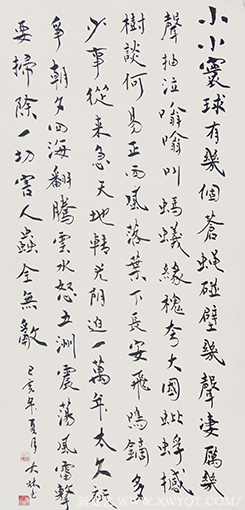 小小寰球有幾個蒼蠅碰壁幾聲凄厲幾
聲抽泣嗡嗡叫螞蟻緣槐夸大國蚍蜉撼
樹談何易正西風落葉下長安飛鳴鏑多
少事從來急天地轉光陰迫一萬年太久祗
爭朝夕四海翻騰雲水怒五洲震蕩風雷擊
要掃除一切害人蟲全無敵
己亥年夏月大林